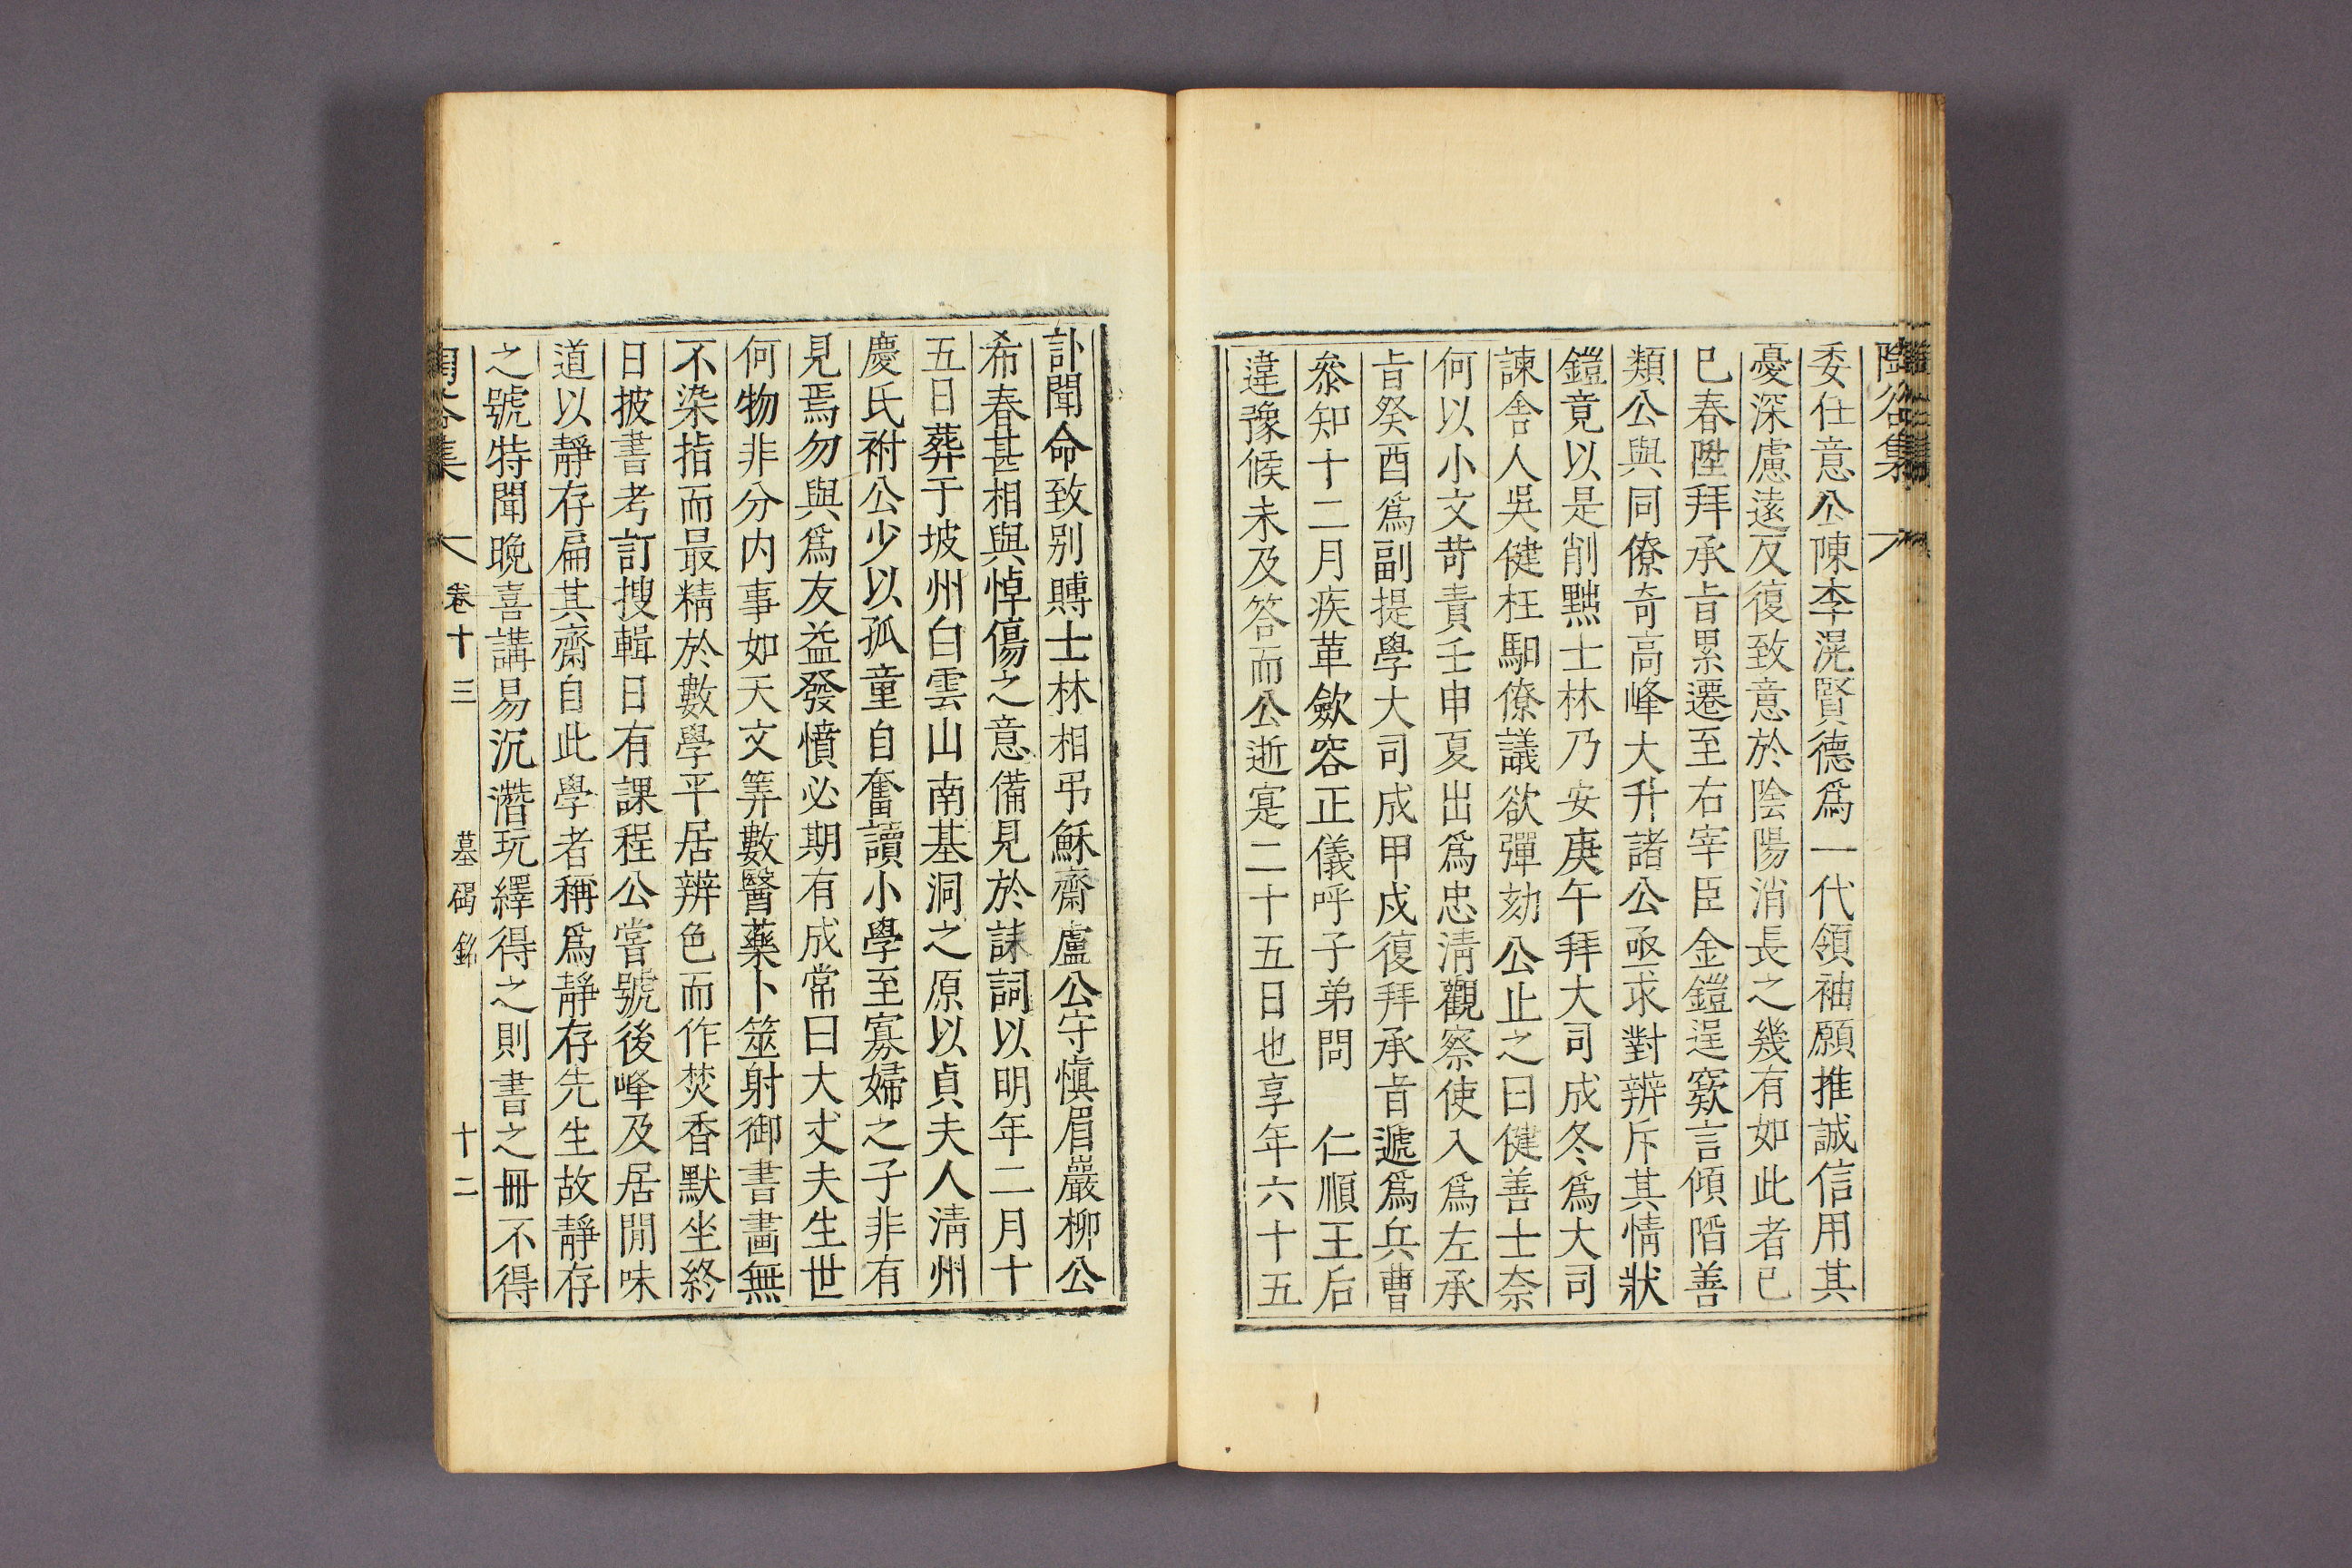 陶谷集
委仕意公陳李滉賢德爲一代領袖願推誠信用其
憂深慮遠反復致意於陰陽消長之幾有如此者己
巳春陞拜承旨累遷至右宰臣金鎧逞窽言傾陷善
類公與同僚奇高峰大升諸公亟求對辨斥其情狀
鎧竟以是削黜士林乃安庚午拜大司成冬爲大司
諫舍人吳健枉馹僚議欲彈劾公止之曰健善士奈
何以小文苛責壬申夏出爲忠淸觀察使入爲左承
旨癸酉爲副提學大司成甲戌復拜承旨遞爲兵曹
叅知十二月疾革歛容正儀呼子弟問 仁順王后
違豫候未及答而公逝寔二十五日也享年六十五
訃聞命致別賻士林相弔穌齋盧公守愼眉巖柳公
希春甚相與悼傷之意備見於誄詞以明年二月十
五日葬于坡州白雲山南基洞之原以貞夫人淸州
慶氏祔公少以孤童自奮讀小學至寡婦之子非有
見焉勿與爲友益發憤必期有成常曰大丈夫生世
何物非分內事如天文筭數醫藥卜筮射御書畫無
不染指而最精於數學平居辨色而作焚香默坐終
日披書考訂搜輯日有課程公嘗號後峰及居閒味
道以靜存扁其齋自此學者稱爲靜存先生故靜存
之號特聞晩喜講易沉濳玩繹得之則書之冊不得
陶谷集 卷十三 墓碣銘 十二